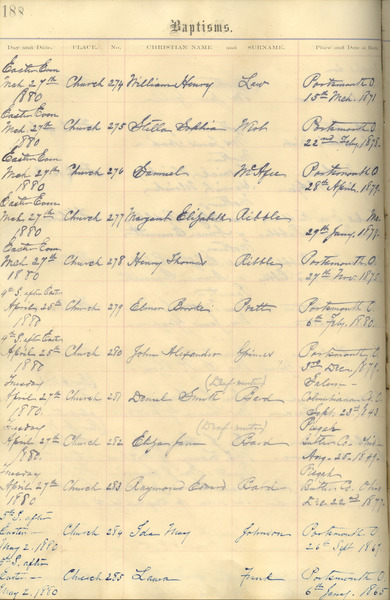 188
Baptisms.
Day and Date. PLACE. No. CHRISTIAN NAME and SURNAME. Place and Date of
Easter Even
Mch 27th Church 274 William Henry Law Portsmouth O.
1880 15th Mch. 1871
Easter Even
Mch 27th Church 275 Stella Sophia Portsmouth O.
1880 22nd Feby, 1878.
Easter Even
Mch 27th Church 276 Samuel McAfee Portsmouth O
1880 28th April. 1879
Easter Even
Mch 27th Church 277 Margaret Elizabeth Ribble
1880 29th Jany.
Easter Even
Mch 27th Church 278 Henry Thomas Ribble Portsmouth O.
1880 27th Nov. 1872.
4th S. after Easter
April 25th Church 279 Elmer Brooke Pratt Portsmouth O.
1880 6th Feby. 1880.
4th S. after Easter
April 25th Church 280 John Alexander Portsmouth O
1880 5th Dec 1879.
Tuesday (Deaf-mute) Salem
April 27th Church 281 Daniel Smith Bard Columbiana Co. O
1880. Sept. 23rd 1843
Tuesday (Deaf-mute)
April 27th Church 282 Eliza Jane Bard Butler Co. Ohio
1880 Aug. 25. 1849.
Tuesday
April 27th Church 283 Raymond Edward Bard Butler Co. Ohio
1880 Dec 22nd 187
5th S. after
Easter Church 284 Ida May Johnson Portsmouth O
May 2. 1880 26th Sept 1867
5th S. after
Easter Church 285 Laura Funk Portsmouth O
May 2. 1880 6th Jany. 1865